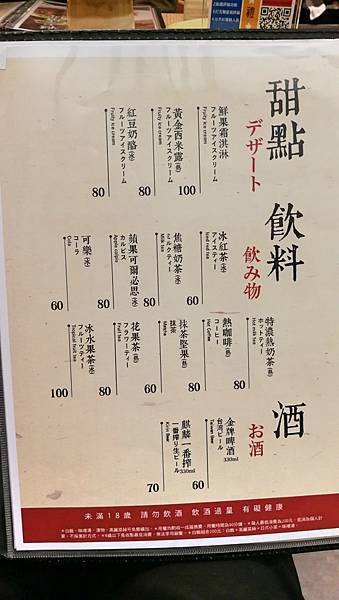 甜點
デザート
鮮果霜淇淋
フルーツアイスクリーム
Fruity ice cream
100
黃金西米露(熱)
フルーツアイスクリーム
Fruity ice cream
80
紅豆奶酪(冰)
フルーツアイスクリーム
Fruity ice cream
80
飲料
飲み物
冰紅茶(冰)
アイスティー
Iced red tea
60
焦糖奶茶(冰)
ミルクティー
Milk tea
80
蘋果可爾必思(冰)
カルピス
Apple calpis
80
可樂(冰)
コーラ
Cola
60
特濃熱奶茶(熱)
ホットティー
Hot milk tea
80
熱咖啡(熱)
コーヒー
Hot Coffee
80
抹茶堅果(熱)
抹茶
Matcha
60
花果茶(熱)
フラワーティー
Fruit tea
80
冰水果茶(冰)
フルーツティー
Tropical fruit tea
100
酒
お酒
金牌啤酒
330ml
台湾ビール
Taiwan Beer
60
麒麟一番搾
330ml
一番搾り生ビール
Kirin Beer
70
未滿18歲 請勿飲酒 飲酒過量 有礙健康